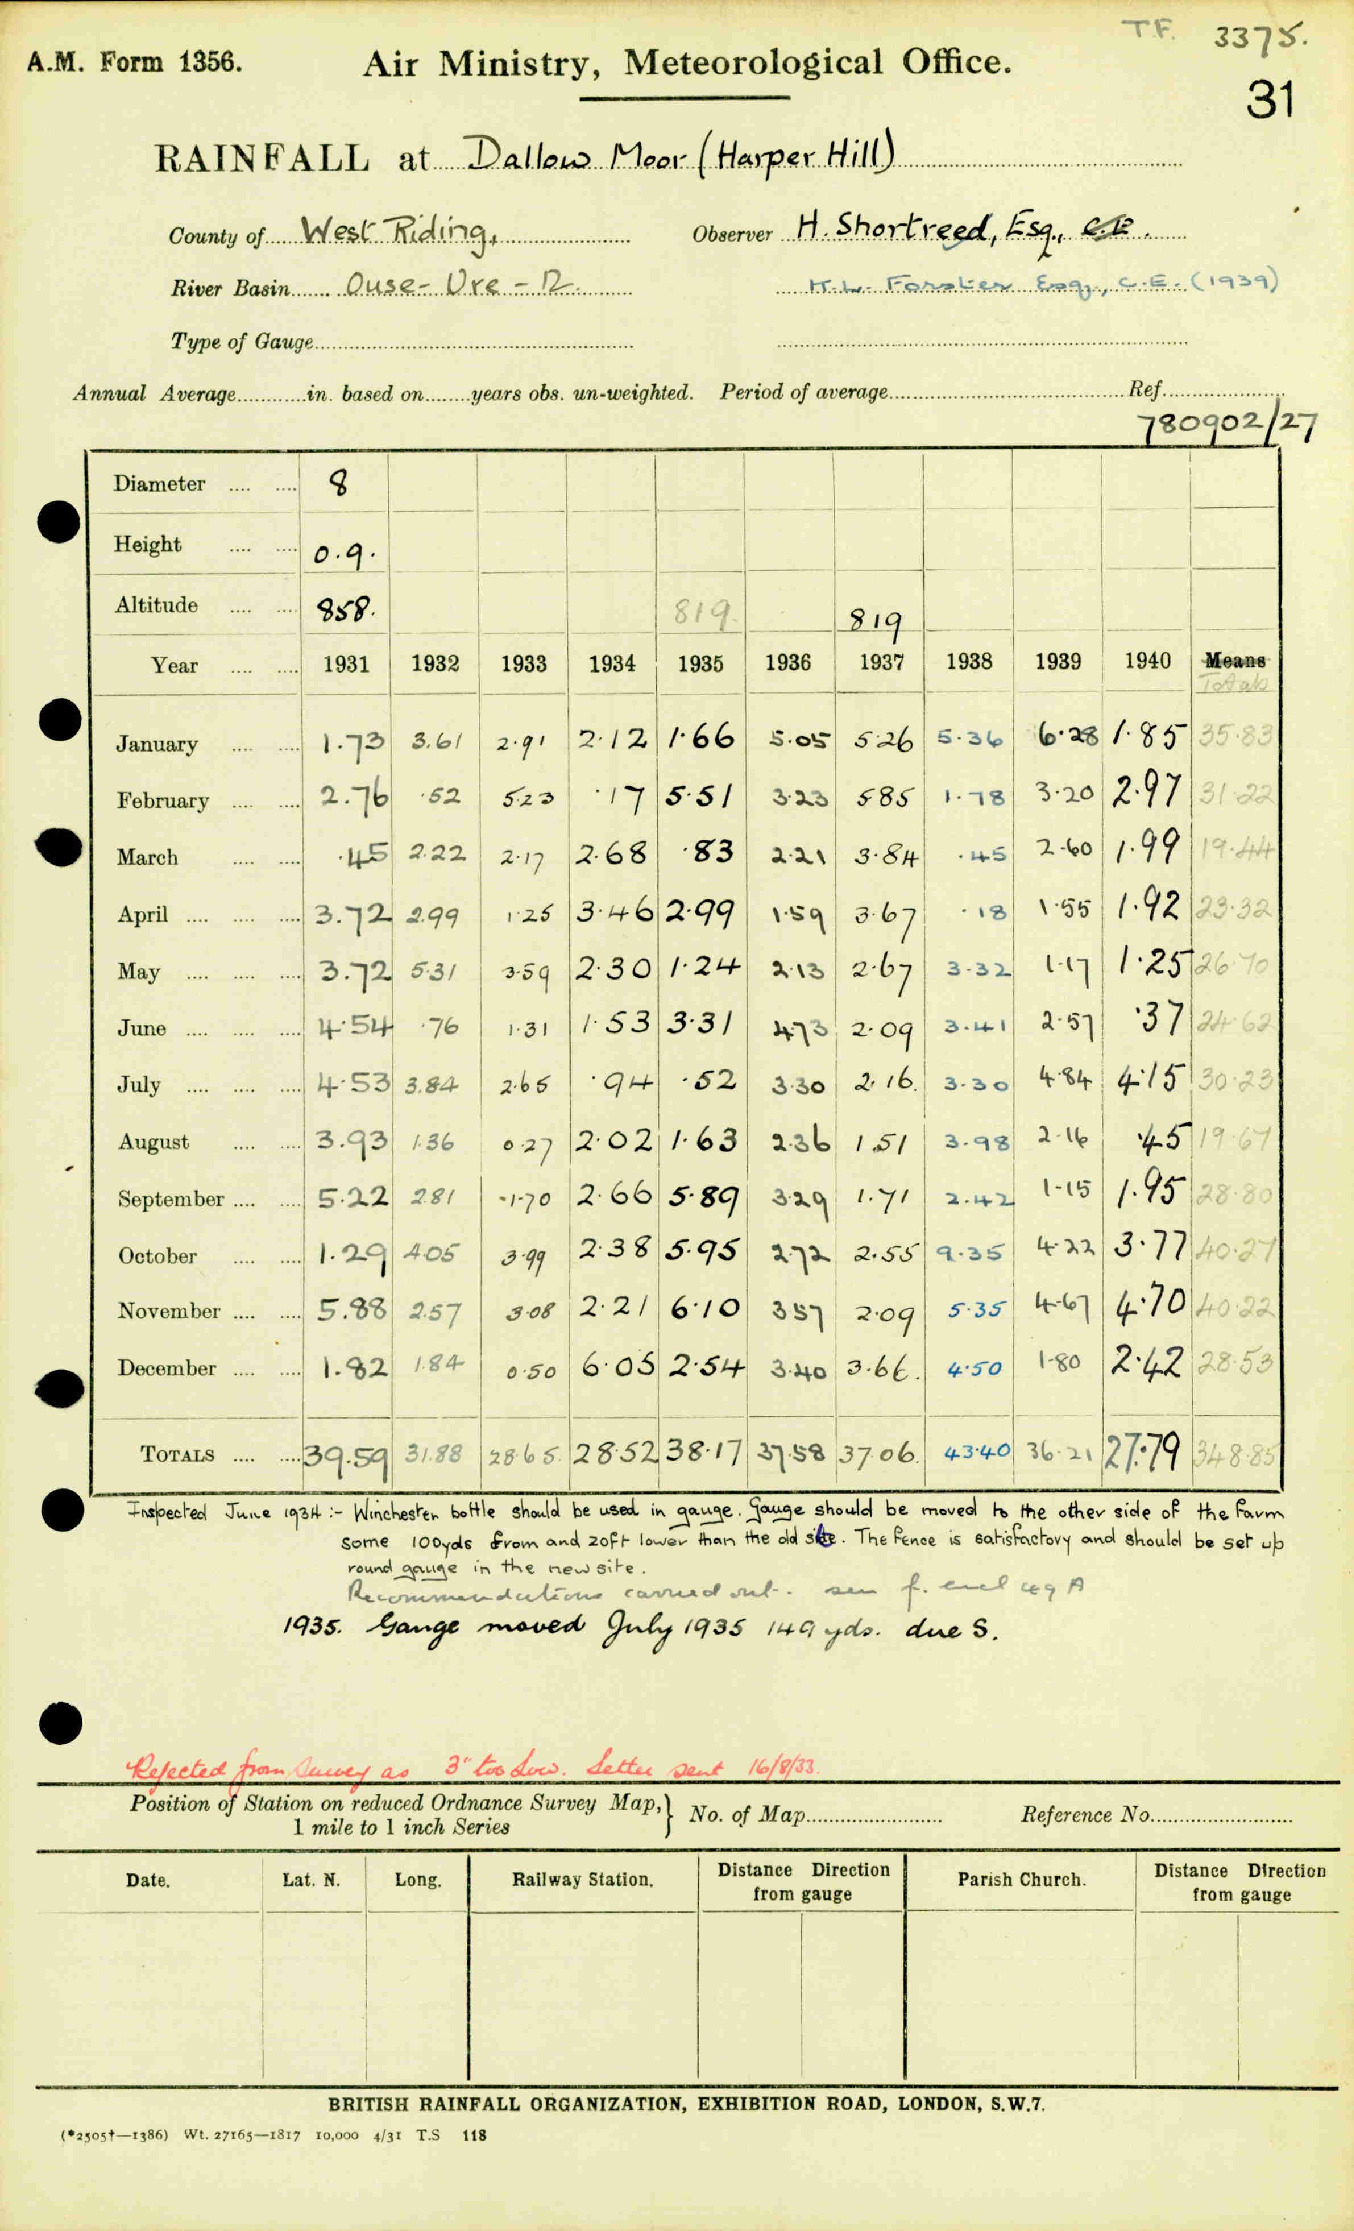 T.F. 3375.
A.M. Form 1356. Air Ministry, Meteorological Office.
31
RAINFALL at Dallow Moor (Harper Hill)
County of West Riding, Observer H. Shortreed, Esq., C.E.
River Basin Ouse - Ure - 12. H.L. Forster Esq., C.E. (1939)
Type of Gauge
Annual Average in. based on years obs. un-weighted. Period of average Ref.
780902/27
Diameter 8
Height 0.9.
Altitude 858. 819. 819
Year 1931 1932 1933 1934 1935 1936 1937 1938 1939 1940 Means
Totals
January 1.73 3.61 2.91 2.12 1.66 5.05 5.26 5.36 6.28 1.85 35.83
February 2.76 .52 5.23 .17 5.51 3.23 5.85 1.78 3.20 2.97 31.22
March .45 2.22 2.17 2.68 .83 2.21 3.84 .45 2.60 1.99 19.44
April 3.72 2.99 1.25 3.46 2.99 1.59 3.67 .18 1.55 1.92 23.32
May 3.72 5.31 3.59 2.30 1.24 2.13 2.67 3.32 1.17 1.25 26.70
June 4.54 .76 1.31 1.53 3.31 4.73 2.09 3.41 2.57 .37 24.62
July 4.53 3.84 2.65 .94 .52 3.30 2.16. 3.30 4.84 4.15 30.23
August 3.93 1.36 0.27 2.02 1.63 2.36 1.51 3.98 2.16 .45 19.67
September 5.22 2.81 1.70 2.66 5.89 3.29 1.71 2.42 1.15 1.95 28.80
October 1.29 4.05 3.99 2.38 5.95 2.72 2.55 9.35 4.22 3.77 40.27
November 5.88 2.57 3.08 2.21 6.10 3.57 2.09 5.35 4.67 4.70 40.22
December 1.82 1.84 0.50 6.05 2.54 3.40 3.66. 4.50 1.80 2.42 28.53
TOTALS 39.59 31.88 28.65. 28.52 38.17 37.58 37.06. 43.40 36.21 27.79 348.85
Inspected June 1934 :- Winchester bottle should be used in gauge. Gauge should be moved to the other side of the farm
some 100yds from and 20ft lower than the old site. The fence is satisfactory and should be set up
round gauge in the new site.
Recommendations carried out. see f. encl 49 A
1935. Gauge moved July 1935 149 yds. due S.
Rejected from Survey as 3" too low. Letter sent 16/8/33.
Position of Station on reduced Ordnance Survey Map, } No. of Map Reference No.
1 mile to 1 inch Series
Date. Lat. N. Long. Railway Station. Distance Direction from gauge Parish Church. Distance Direction from gauge
BRITISH RAINFALL ORGANIZATION, EXHIBITION ROAD, LONDON, S.W.7.
(*2505†—1386) Wt. 27165—1817 10,000 4/31 T.S 118